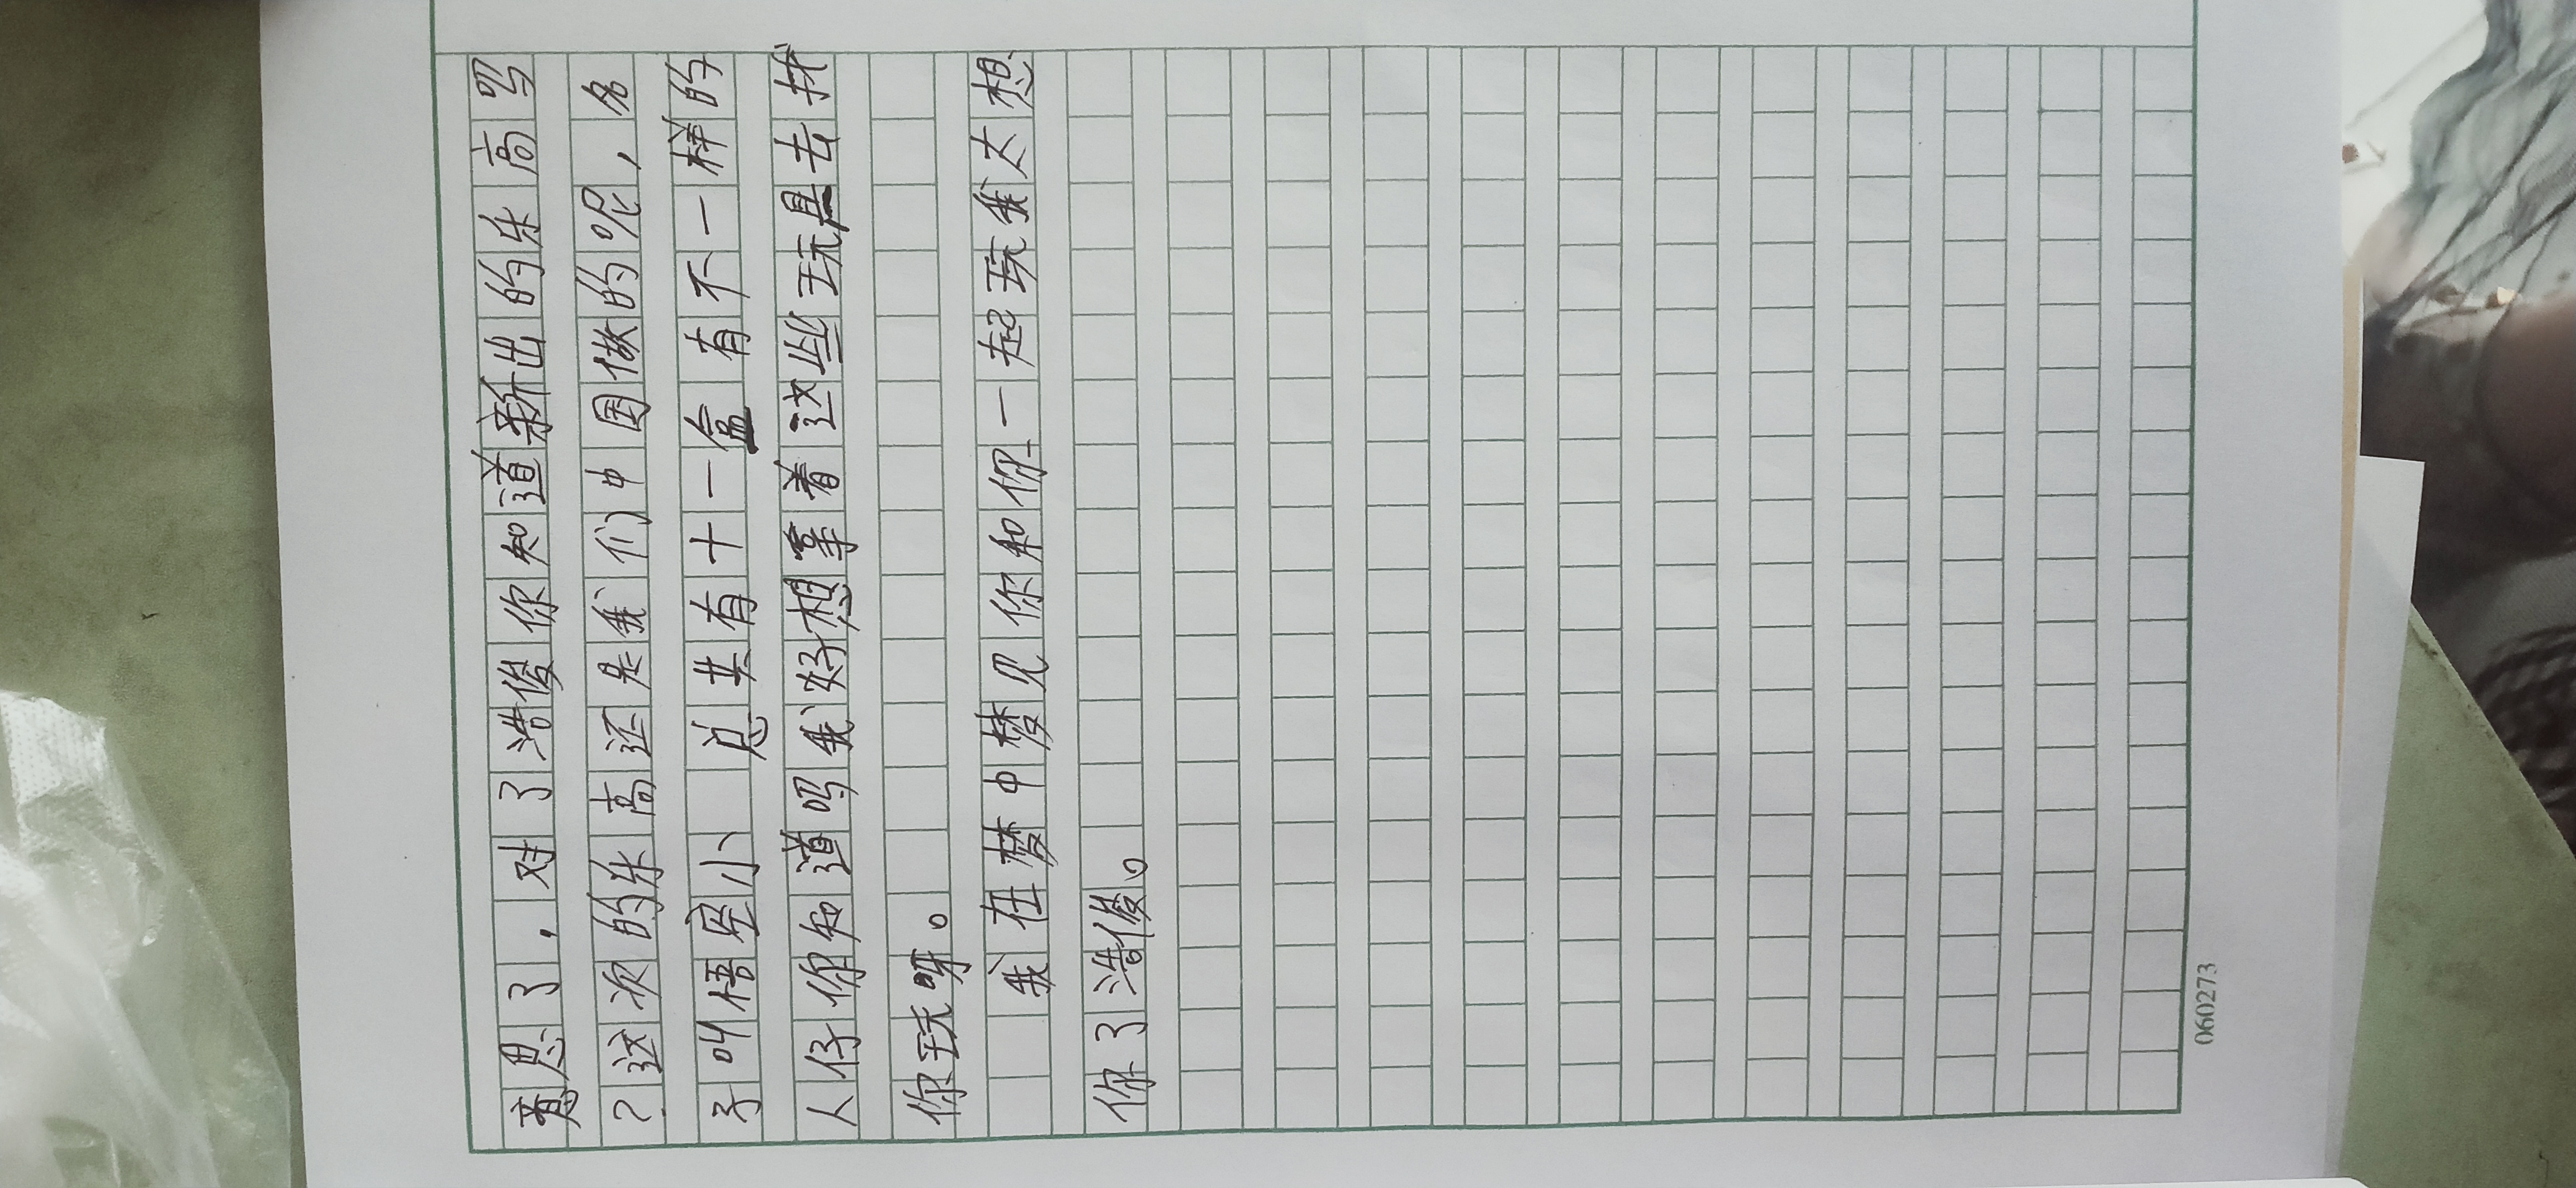 意思了，对了浩俊你知道新出的乐高吗
？这次的乐高还是我们中国做的呢，名
子叫悟空小 总共有十一盒有不一样的
人仔你知道吗我好想拿着这些玩具去找
你玩呀。
我在梦中梦见你和你一起玩我太想
你了浩俊。
060273